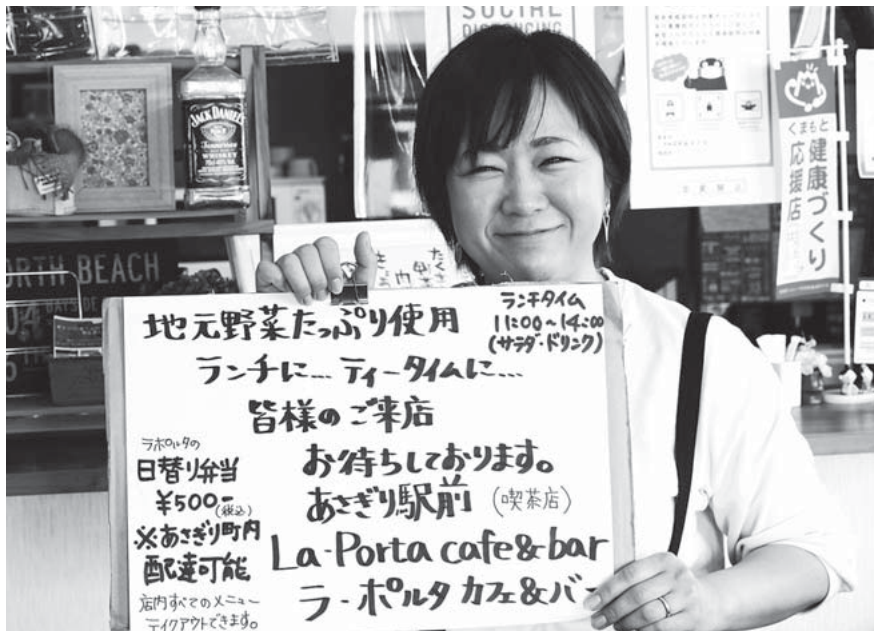 SOCIAL
DISTANCING
JACK DANIEL'S
Tennessee
WHISKEY
くまもと
健康づくり
応援店
NORTH BEACH
地元野菜たっぷり使用
ランチタイム
11:00~14:00
(サラダ・ドリンク)
ランチに… ティータイムに…
皆様のご来店
お待ちしております。
あさぎり駅前 (喫茶店)
La-Porta cafe&bar
ラ-ポルタ カフェ&バー
ラポルタの
日替り弁当
¥500-
(税込)
※あさぎり町内
配達可能
店内すべてのメニュー
テイクアウトできます。